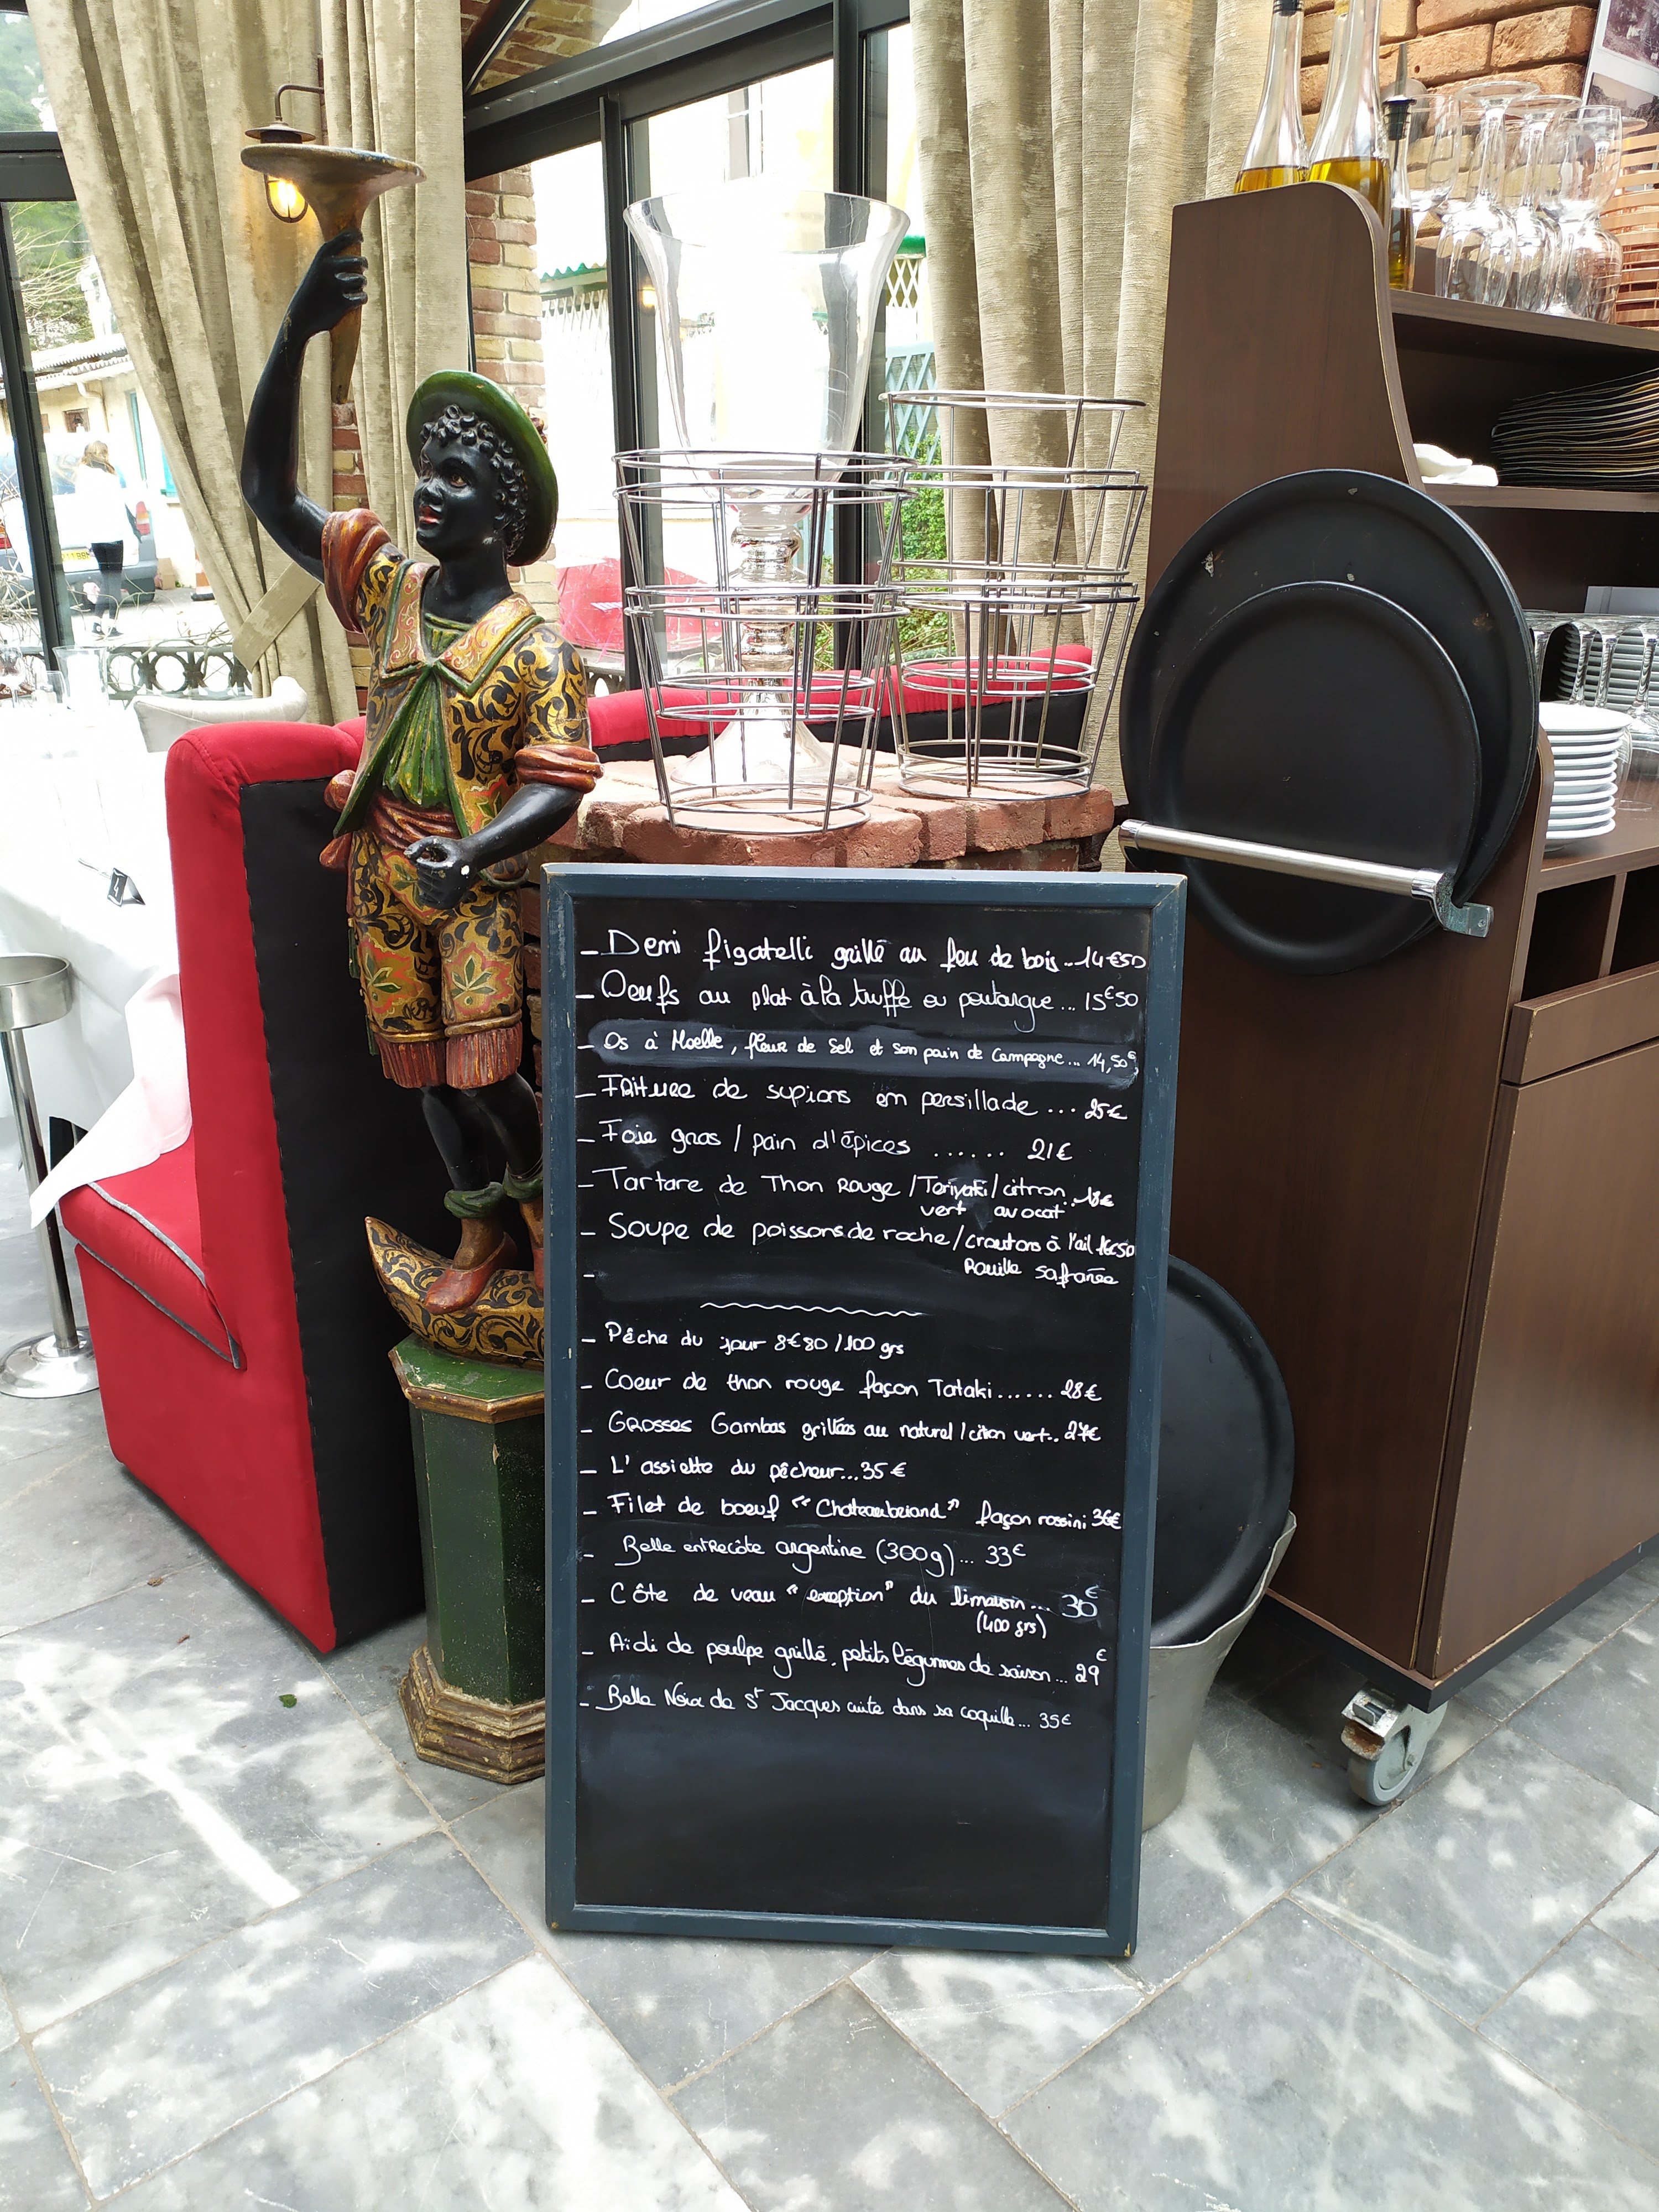 - Demi figatelli grillé au feu de bois...14€50
- Oeufs au plat à la truffe ou poutargue... 15€50
- Os à Moelle, fleur de Sel et son pain de Campagne... 14,50€
- Friture de supions en persillade ... 25€
- Foie gras / pain d'épices ...... 21€
- Tartare de Thon Rouge / Teriyaki / citron vert avocat..18€
- Soupe de poissons de roche / croutons à l'ail 16€50
Rouille safranée
-
- Pêche du jour 8€80 / 100 grs
- Coeur de thon rouge façon Tataki...... 28€
- Grosses Gambas grillées au naturel / citron vert.. 27€
- L'assiette du pêcheur...35€
- Filet de boeuf "Chateaubriand" façon rossini 36€
- Belle entrecôte argentine (300g)... 33€
- Côte de veau "exception" du limousin... 36€
(400 grs)
- Aïoli de poulpe grillé, petits légumes de saison... 29€
- Belle Noix de St Jacques cuite dans sa coquille... 35€
4